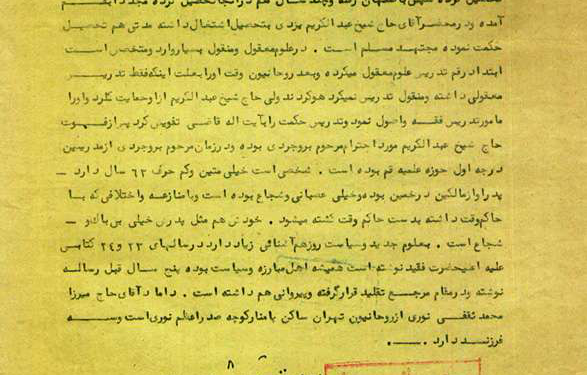 آمده ودرمحضرآقای حاج شیخ عبدالکریم یزدی بتحصیل اشتغال داشته مدتی هم تحصیل
حکمت نموده مجتهد مسلم است . درعلوم معقول ومنقول بسیاروارد ومتخصص است
ابتدا درقم تدریس علوم معقول میکرده وبعد روحانیون وقت اورا بعلت اینکه فقط تدریس
معقولی داشته ومنقول تدریس نمیکرد هوکردند ولی حاج شیخ عبدالکریم ازاوحمایت کلرد واورا
مامورتدریس فقه واصول نمود وتدریس حکمت رابآیت اله قاضی تفویض کرد پس ازفوت
حاج شیخ عبدالکریم مورداحترام مرحوم بروجردی بوده ودرزمان مرحوم بروجردی ازمدرسین
درجه اول حوزه علمیه قم بوده است . شخصی است خیلی متین وکم حرف ۶۲ سال دارد –
پدراوازمالکین درخمین بوده وخیلی عصبانی وشجاع بوده است وبامنازعه واختلافی که با
حاکم وقت داشته بدست حاکم وقت کشته میشود . خودش هم مثل پدرش خیلی بی باک و –
شجاع است . بعلوم جدید وسیاست روزهم آشنائی زیاد دارد درسالهای ۲۳ و ۲۴ کتابی
علیه اعلیحضرت فقید نوشته است همیشه اهل مبارزه وسیاست بوده پنج سال قبل رساله
نوشته ودرمقام مرجع تقلید قرارگرفته وپیروانی هم داشته است . داماد آقای حاج میرزا
محمد ثقفی نوری ازروحانیون تهران ساکن پامنارکوچه صدراعظم نوری است وسه
فرزند دارد . –.
۸